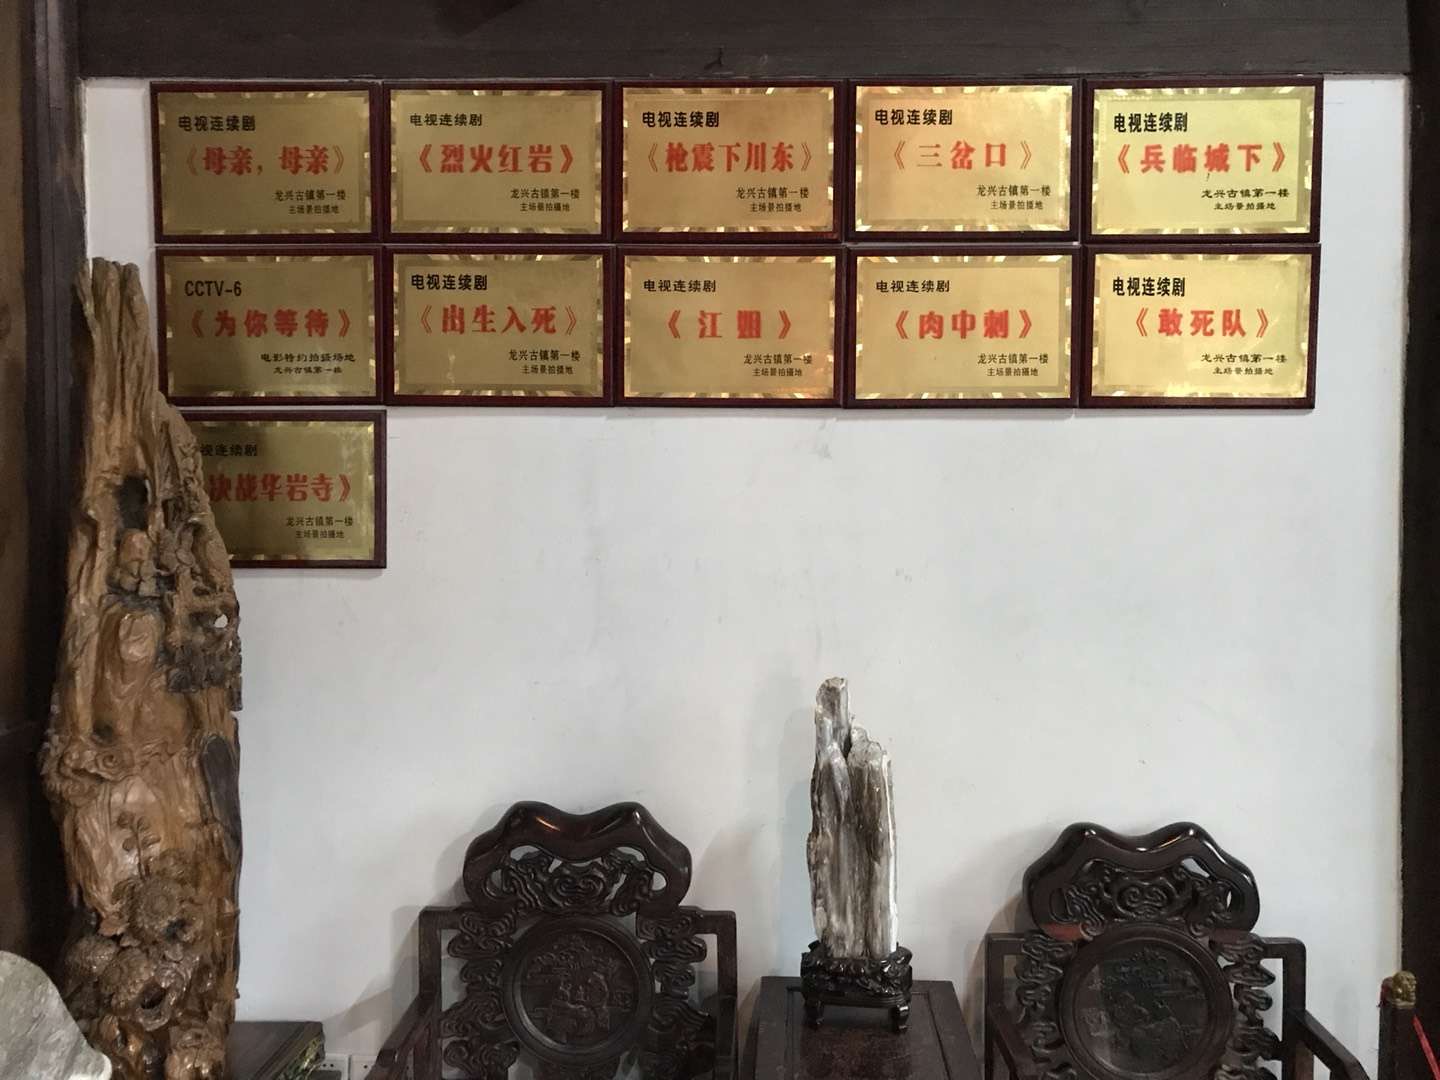 电视连续剧
《母亲，母亲》
龙兴古镇第一楼
主场景拍摄地
电视连续剧
《烈火红岩》
龙兴古镇第一楼
主场景拍摄地
电视连续剧
《枪震下川东》
龙兴古镇第一楼
主场景拍摄地
电视连续剧
《三岔口》
龙兴古镇第一楼
主场景拍摄地
电视连续剧
《兵临城下》
龙兴古镇第一楼
主场景拍摄地
CCTV-6
《为你等待》
电影特约拍摄场地
龙兴古镇第一楼
电视连续剧
《出生入死》
龙兴古镇第一楼
主场景拍摄地
电视连续剧
《江姐》
龙兴古镇第一楼
主场景拍摄地
电视连续剧
《肉中刺》
龙兴古镇第一楼
主场景拍摄地
电视连续剧
《敢死队》
龙兴古镇第一楼
主场景拍摄地
视连续剧
决战华岩寺》
龙兴古镇第一楼
主场景拍摄地